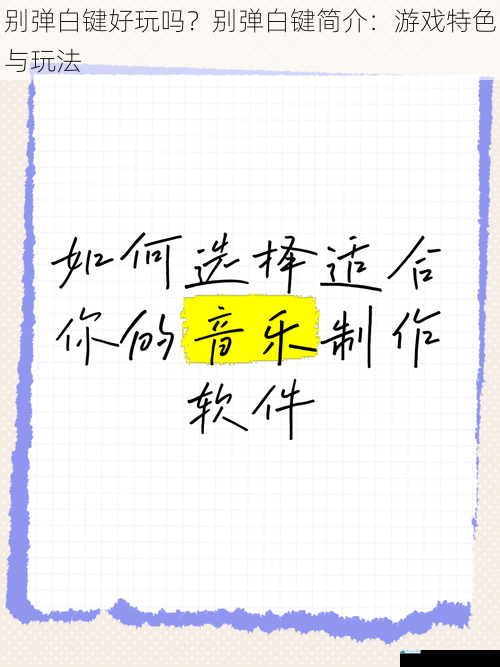 别弹白键好玩吗？别弹白键简介：游戏特色
与玩法
如何选择适合
你的音乐制作
软件